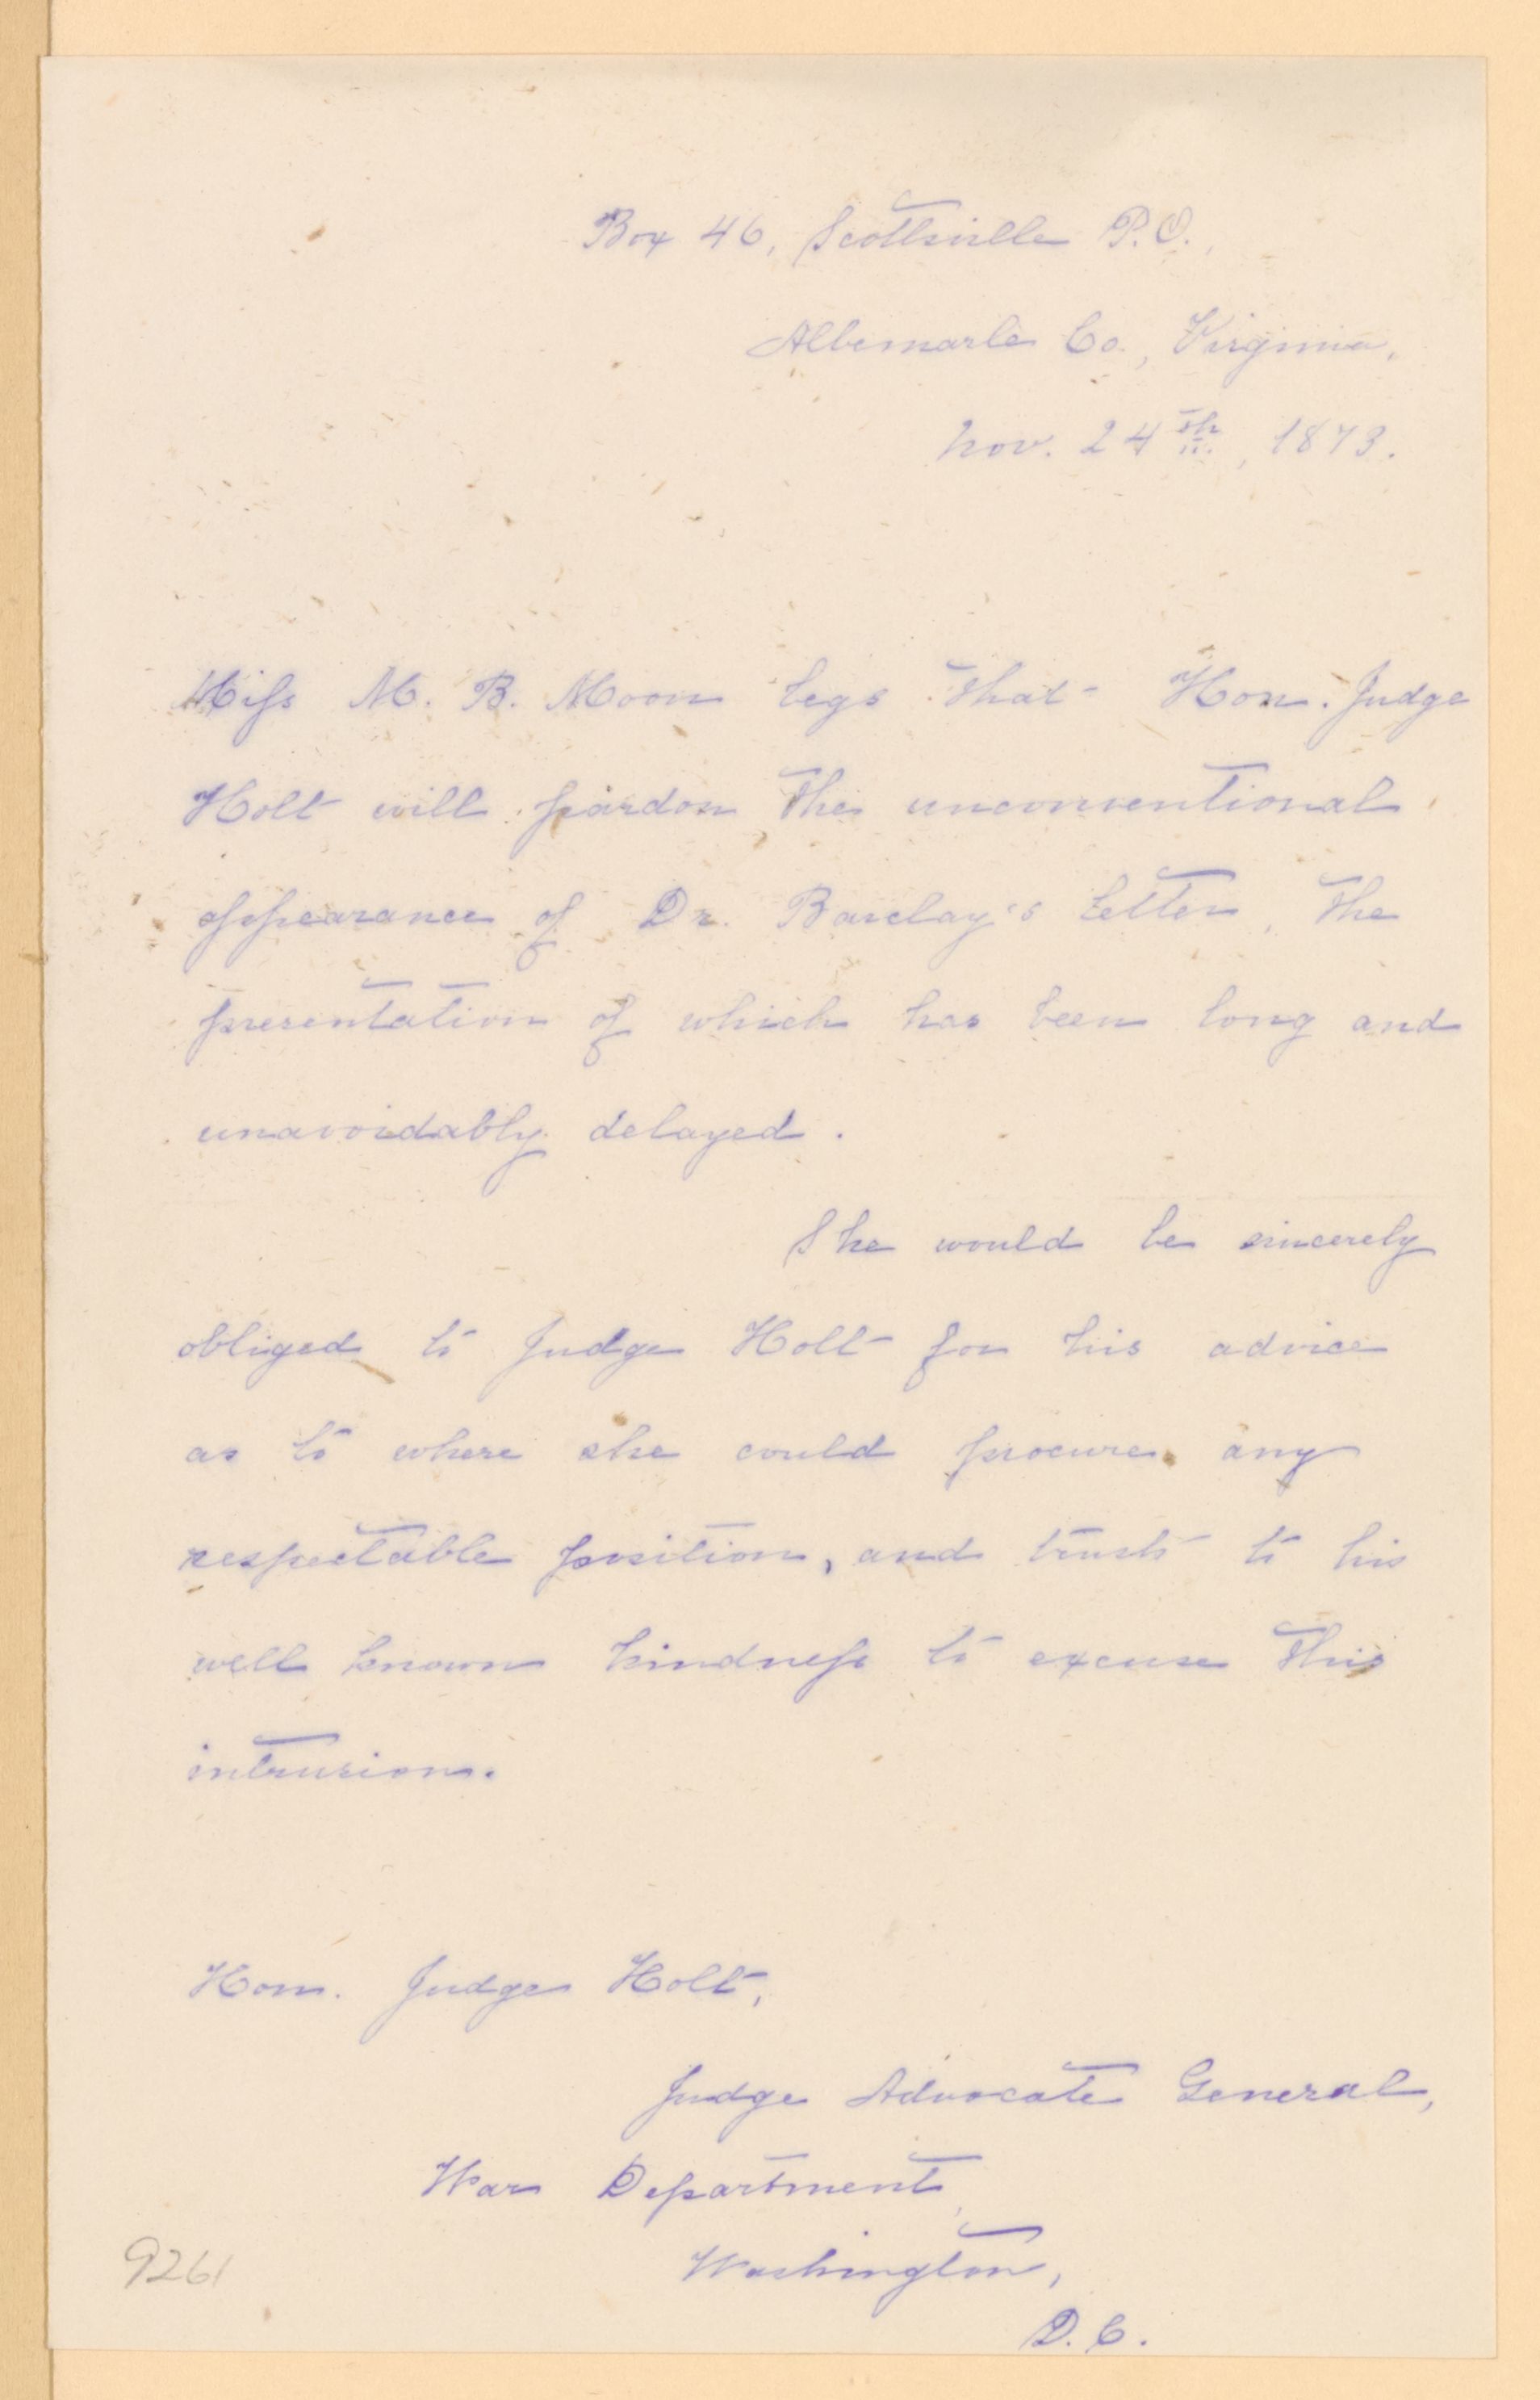 Box 46, Scottsville P.O.,
Albemarle Co., Virginia,
Nov. 24th, 1873.
Miss M. B. Moon begs that Hon. Judge
Holt will pardon the unconventional
appearance of Dr. Barclay's letter, the
presentation of which has been long and
unavoidably delayed.
She would be sincerely
obliged to Judge Holt for his advice
as to where she could procure any
respectable position, and trusts to his
well known kindness to excuse this
intrusion.
Hon. Judge Holt,
Judge Advocate General,
War Department,
Washington,
D.C.
9261